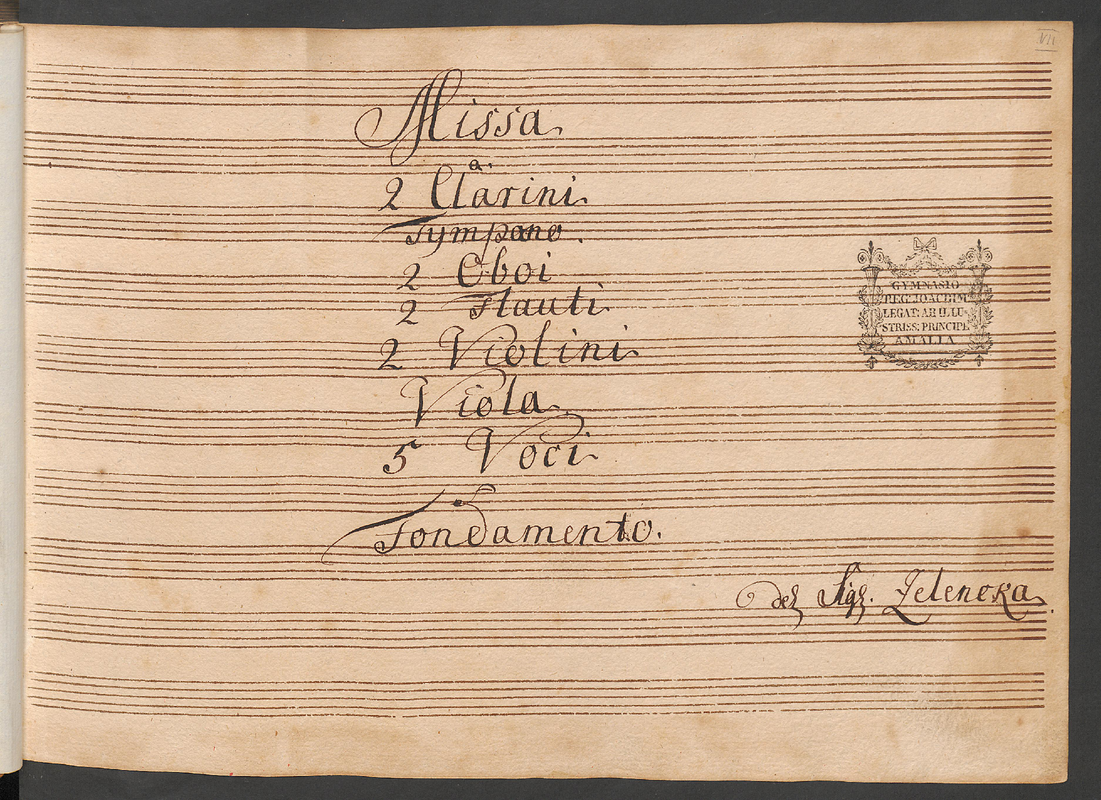 VII
Missa
a.
2 Clarini.
Tympano.
2 Oboi
2 Flauti.
2 Violini.
Viola.
5 Voci.
Fondamento.
del Sigr. Zelencka.
GYMNASIO
REG: IOACHIM:
LEGAT: AB ILLU-
STRISS: PRINCIPE
AMALIA